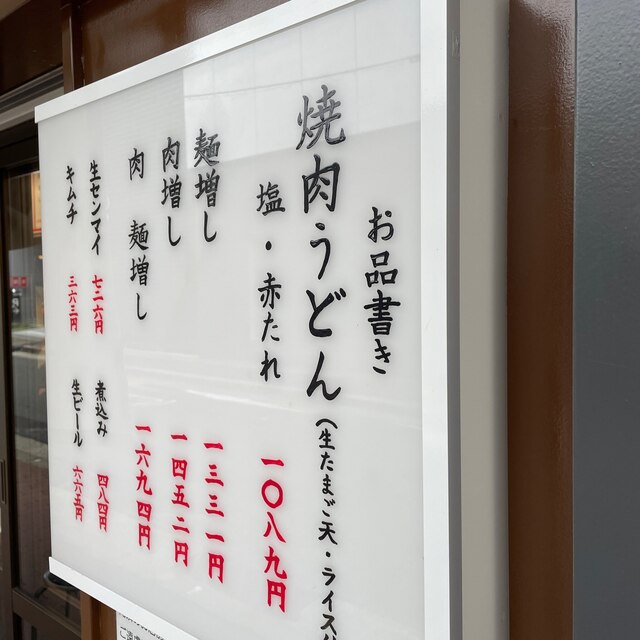 お品書き
焼肉うどん(生たまご天・ライス
塩・赤たれ 一〇八九円
麺増し 一三三一円
肉増し 一四五二円
肉 麺増し 一六九四円
生センマイ 七二六円
煮込み 四八四円
キムチ 三六三円
生ビール 六六五円